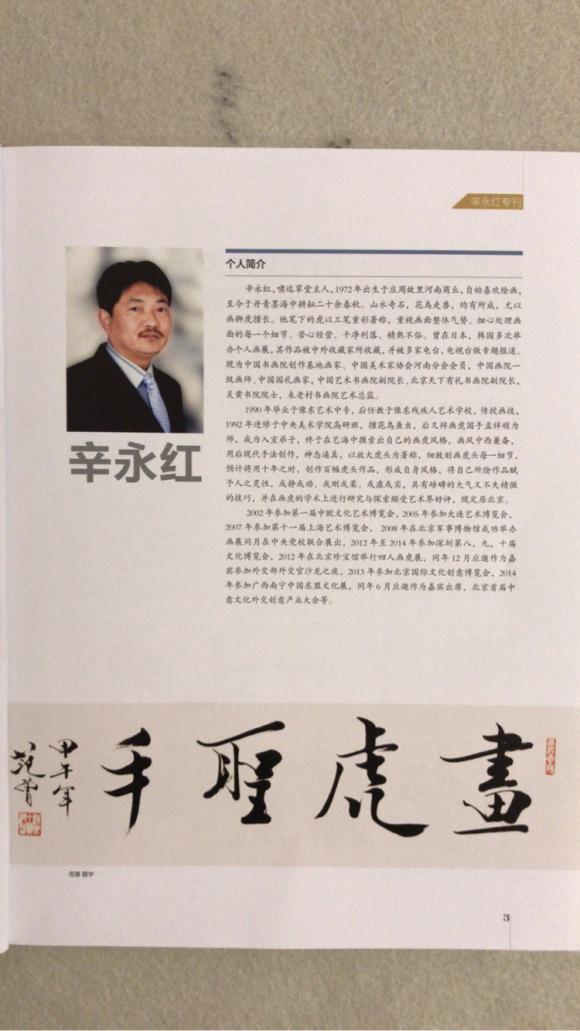 辛永红专刊
个人简介
辛永红
辛永红，啸远草堂主人，1972年出生于庄周故里河南商丘，自幼喜欢绘画，
至今于丹青墨海中耕耘二十余春秋。山水奇石，花鸟走兽，均有所成，尤以
画狮虎擅长。他笔下的虎以工笔重彩著称，重视画面整体气势、细心处理画
面的每一个细节。苦心经营、干净利落、精熟不俗。曾在日本，韩国多次举
办个人画展，其作品被中外收藏家所收藏，并被多家电台，电视台做专题报道。
现为中国书画院创作基地画家、中国美术家协会河南分会会员，中国画院一
级画师，中国国礼画家，中国艺术书画院副院长，北京天下有礼书画院副院长，
炎黄书院院士，朱老村书画院艺术总监。
1990年毕业于豫东艺术中专，后任教于豫东残疾人艺术学校，传授画技，
1992年进修于中央美术学院高研班，擅花鸟鱼虫，后又拜画虎国手孟祥顺为
师，成为入室弟子，终于在艺海中摸索出自己的画虎风格，画风中西兼备，
用后现代手法创作，神态逼真，以放大虎头为著称，细致刻画虎头每一细节，
预计将用十年之时，创作百幅虎头作品，形成自身风格，将自己所绘作品赋
予人之灵性，或静或动、或刚或柔、或虚或实，具有磅礴的大气又不失精微
的技巧，并在画虎的学术上进行研究与探索颇受艺术界好评，现定居北京。
2002年参加第一届中欧文化艺术博览会，2005年参加大连艺术博览会，
2007年参加第十一届上海艺术博览会， 2008年在北京军事博物馆成功举办
画展同月在中央党校联合展出，2012年至2014年参加深圳第八，九，十届
文化博览会，2012年在北京珍宝馆举行四人画虎展，同年12月应邀作为嘉
宾参加外交部外交官沙龙之夜，2013年参加北京国际文化创意博览会，2014
年参加广西南宁中国东盟文化展，同年6月应邀作为嘉宾出席，北京首届中
意文化外交创意产业大会等。
畫虎聖手
甲午年
范曾
范曾 题字
3